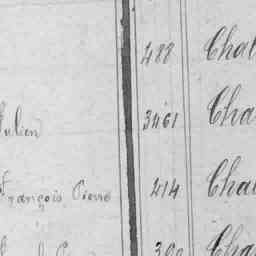 488 Chal
Julien 3461 Cha
François Pierre 414 Cha
390 Cha